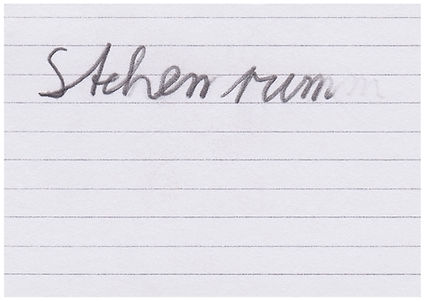 Stehen rum